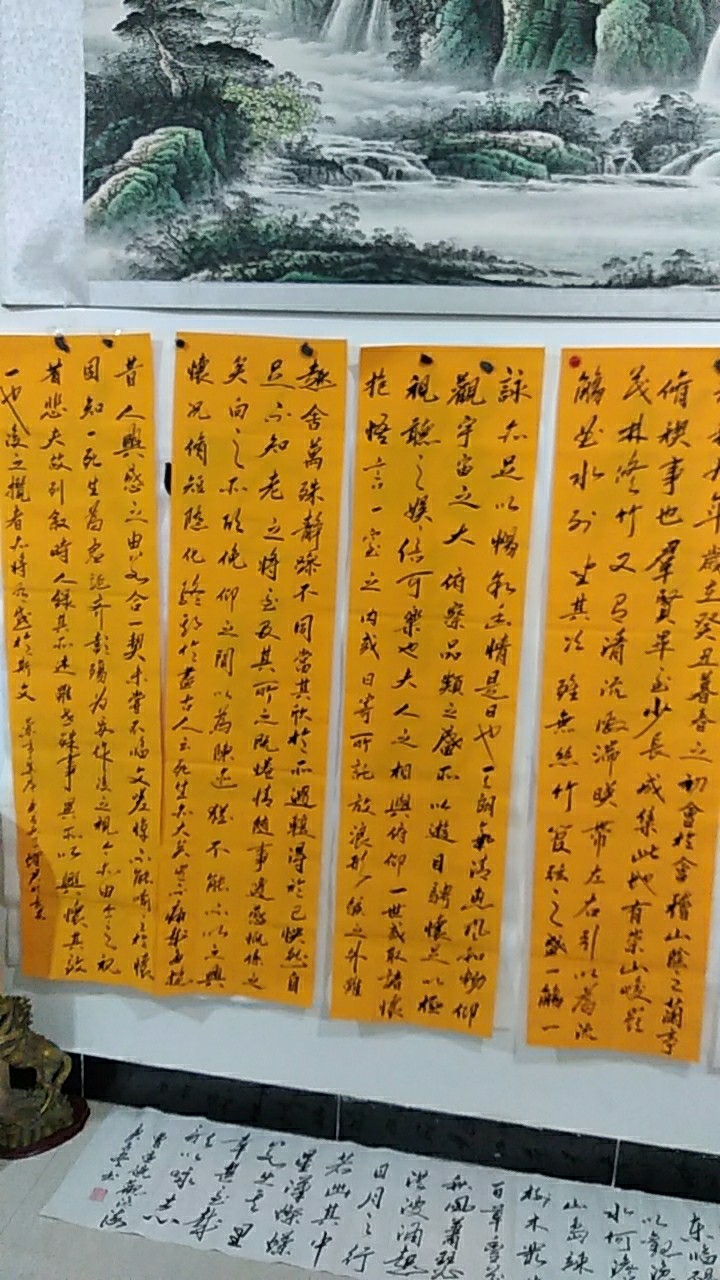 年歲在癸丑暮春之初會於會稽山陰之蘭亭
脩禊事也羣賢畢至少長咸集此地有崇山峻嶺
茂林修竹又有清流激湍暎帶左右引以為流
觴曲水列坐其次雖無絲竹管絃之盛一觴一
詠亦足以暢敘幽情是日也天朗氣清惠風和暢仰
觀宇宙之大俯察品類之盛所以遊目騁懷足以極
視聽之娛信可樂也夫人之相與俯仰一世或取諸懷
抱悟言一室之內或因寄所託放浪形骸之外雖
趣舍萬殊靜躁不同當其欣於所遇輒得於己快然自
足不知老之將至及其所之既惓情隨事遷感慨係之
矣向之所欣俛仰之間以為陳迹猶不能不以之興
懷況脩短隨化終期於盡古人云死生亦大矣豈不痛哉每攬
昔人興感之由若合一契未嘗不臨文嗟悼不能喻之於懷
固知一死生為虛誕齊彭殤為妄作後之視今亦由今之視
昔悲夫故列敘時人錄其所述雖世殊事異所以興懷其致
一也後之攬者亦將有感於斯文
東臨碣
以觀滄
水何澹
山島竦
樹木叢
百草豐茂
秋風蕭瑟
洪波涌起
日月之行
若出其中
星漢燦爛
若出其里
幸甚至哉
歌以咏志